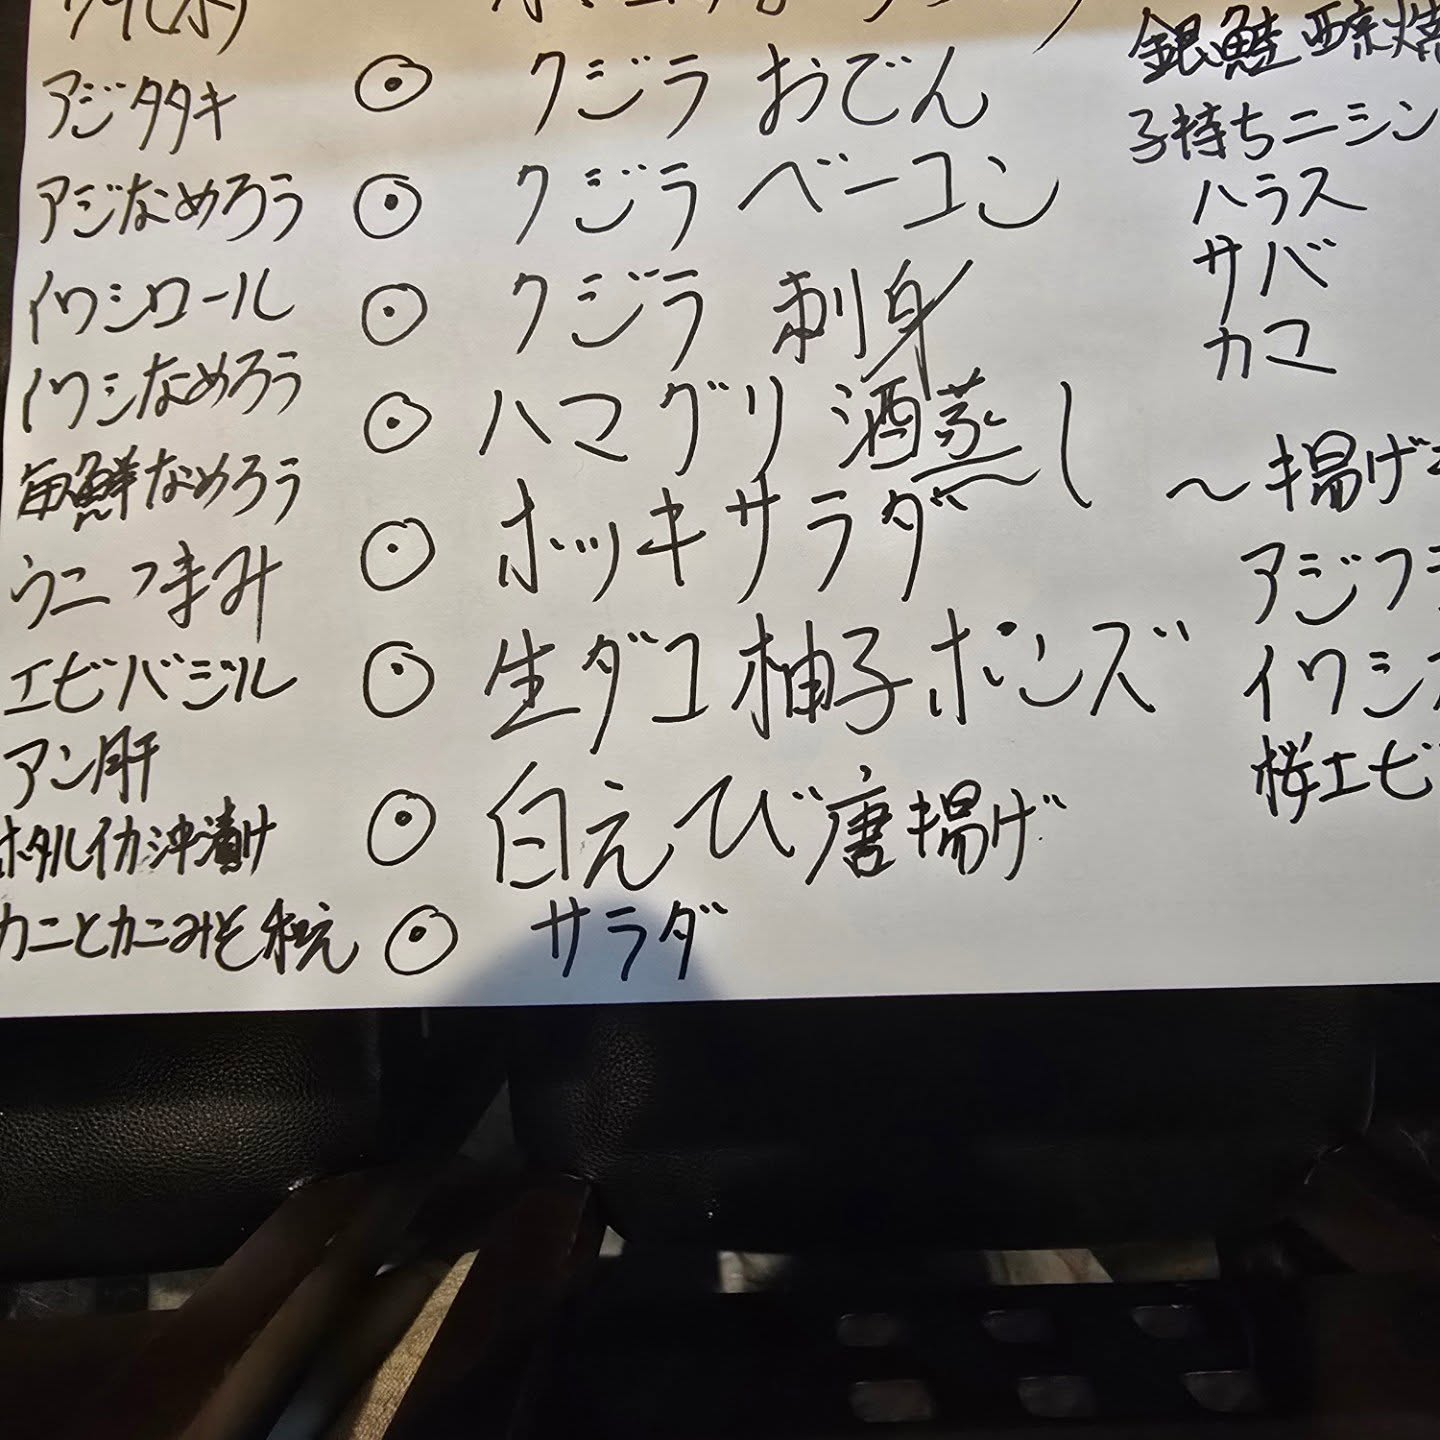 アジタタキ
アジなめろう
イワシロール
イワシなめろう
海鮮なめろう
ウニつまみ
エビバジル
アン肝
ホタルイカ沖漬け
カニとカニみそ和え
◉ クジラ おでん
◉ クジラ ベーコン
◉ クジラ 刺身
◉ ハマグリ 酒蒸し
◉ ホッキサラダ
◉ 生ダコ 柚子ポンズ
◉ 白えび唐揚げ
◉ サラダ
銀鮭西京焼
子持ちニシン
ハラス
サバ
カマ
〜揚げ
アジフ
イワシ
桜エビ